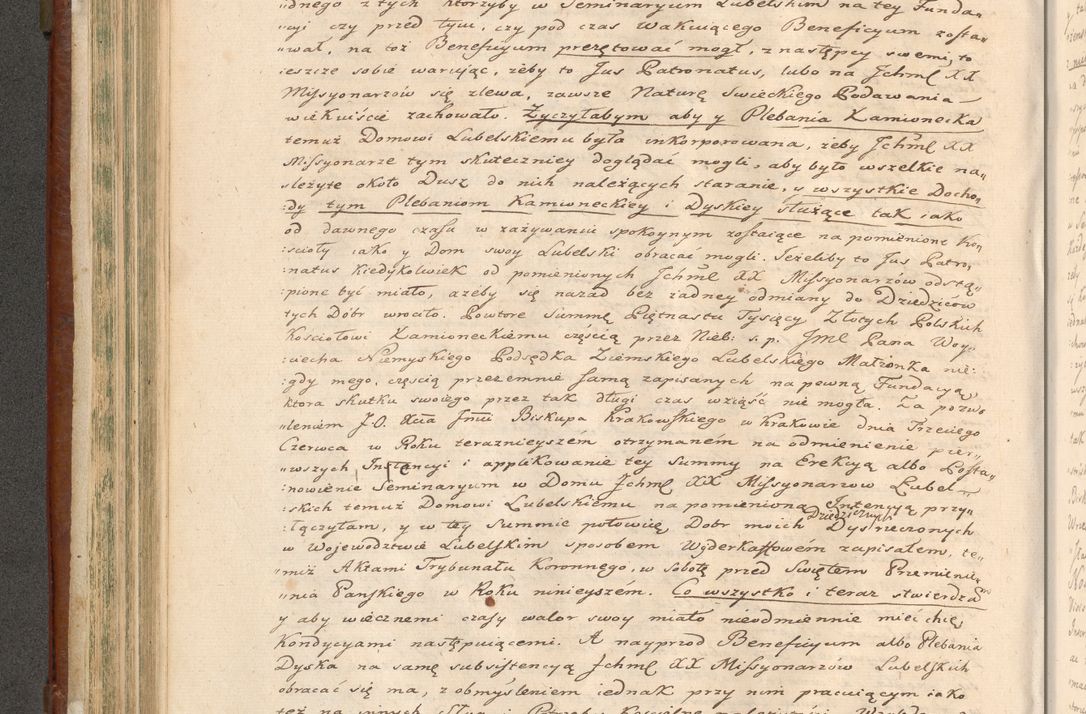 "dnego z tych ktorzyby w Seminaryum Lubelskim na tey Funda„
"cyi czy przed tym, czy pod czas wakuiącego Beneficyum zosta„
"wał, na toż Beneficyum prezętować mogł, z następcy swemi, to
ieszcze sobie waruiąc, żeby to Jus Patronatus, lubo na Jchmć XX
Missyonarzów się zlewa, zawsze Naturę Swieckiego Podawania
wiekuiście zachowało. Zyczyłabym aby y Plebania Kamionecka
temuż Domowi Lubelskiemu była inkorporowana, żeby Jchmć XX
Missyonarze tym skuteczniey doglądać mogli, aby było wszelkie na„
sleżyte około Dusz do nich należących staranie, y wszystkie Docho„
:dy tym Plebaniom Kamioneckiey i Dyskiey służące tak iako
od dawnego czasu w zażywaniu spokoynym zostaiące na pomienione Ko„
:scioły iako y Dom swoy Lubelski obracać mogli. Jeżeliby to Jus Patro„
:natus kiedykolwiek od pomienionych Jchmć XX Missyonarzów odstą„
:pione być miało, ażeby się nazad bez żadney odmiany do Dziedziców
tych Dobr wrociło. Powtore Summę Piętnastu Tysięcy Złotych Polskich
Kościołowi Kamioneckiemu częścią przez Nieb: s. p. Jmć Pana Woy„
:ciecha Niemyskiego Podsędka Ziemskiego Lubelskiego Małżonka nie:
:gdy mego, częscią przezemnie samą zapisanych na pewną Fundacyą,
ktora skutku swoiego przez tak długi czas wziąść nie mogła. Za pozwo
"leniem J.O. Xcia Jmci Biskupa Krakowskiego w Krakowie dnia Trzeciego
Czerwca w Roku teraznieyszem otrzymanem na odmienienie pier„
"wszych Instancyi i applikowanie tey Summy na Erekcyą albo Posta„
:nowienie Seminaryum w Domu Jchmć XX Missyonarzow Lubel„
:skich temuż Domowi Lubelskiemu na pomienioną Intencyą przy„
:łączyłam, y w tey Summie połowicę, Dobr moich Dziedzicznych Dys rzeczonych
w Wojewodztwie Lubelskim sposobem Wyderkaffowem zapisałem, te„
"miż Aktami Trybunału Koronnego, w Sobotę przed Swiętem Przemienie„
"nia Pańskiego w Roku ninieyszem. Co wszystko i teraz stwierdza
y aby wiecznemi czasy walor swoy miało nieodmiennie mieć chcę,
Kondycyami następuiącemi. A nayprzod Beneficyum albo Plebania
Dyska na samę subsistencyą Jchmć XX Missyonarzów Lubelskich
obracać się ma, z obmysleniem iednak przy nim pracuiącym iako